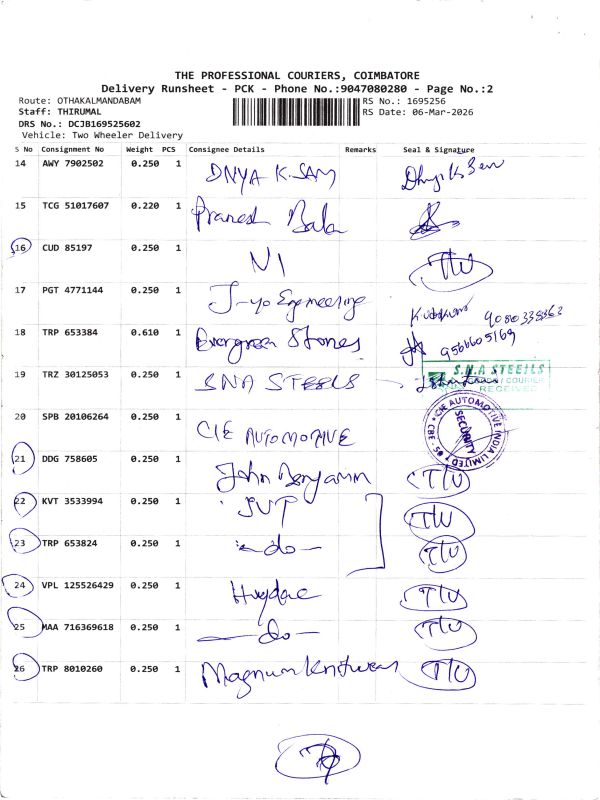 THE PROFESSIONAL COURIERS, COIMBATORE
Delivery Runsheet - PCK - Phone No.:9047080280 - Page No.:2
Route: OTHAKALMANDABAM RS No.: 1695256
Staff: THIRUMAL RS Date: 06-Mar-2026
DRS No.: DCJB169525602
Vehicle: Two Wheeler Delivery
S No Consignment No Weight PCS Consignee Details Remarks Seal & Signature
14 AWY 7902502 0.250 1 DNYA K.SAM
15 TCG 51017607 0.220 1 Pranesh Bala
16 CUD 85197 0.250 1 NI T/U
17 PGT 4771144 0.250 1 J-yo Engineering
18 TRP 653384 0.610 1 Evergreen Stones 9566605169
19 TRZ 30125053 0.250 1 SNA STEELS S.N.A STEEILS COURIER RECEIVED
20 SPB 20106264 0.250 1 CIE AUTOMOTIVE CIE AUTOMOTIVE INDIA LIMITED CBE - 05 SECURITY
21 DDG 758605 0.250 1 John Benjamin T/U
22 KVT 3533994 0.250 1 SVT T/U
23 TRP 653824 0.250 1 -do- T/U
24 VPL 125526429 0.250 1 T/U
25 MAA 716369618 0.250 1 -do- T/U
26 TRP 8010260 0.250 1 Magnum Knitwear T/U